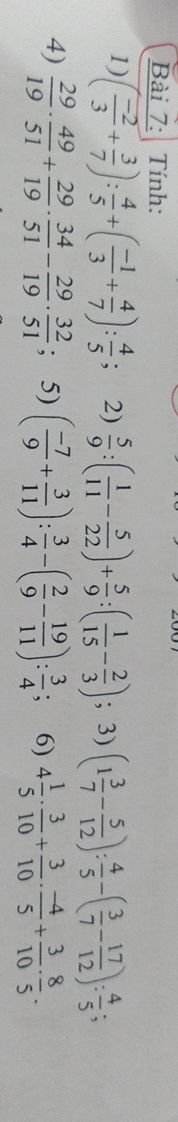 Bài 7: Tính:
1) (-2/3 + 3/7) : 4/5 + (-1/3 + 4/7) : 4/5; 2) 5/9 : (1/11 - 5/22) + 5/9 : (1/15 - 2/3); 3) (1 3/7 - 5/12) : 4/5 - (3/7 - 17/12) : 4/5;
4) 29/19 . 49/51 + 29/19 . 34/51 - 29/19 . 32/51; 5) (-7/9 + 3/11) : 3/4 - (2/9 - 19/11) : 3/4; 6) 4 1/5 . 3/10 + 3/10 . -4/5 + 3/10 . 8/5.